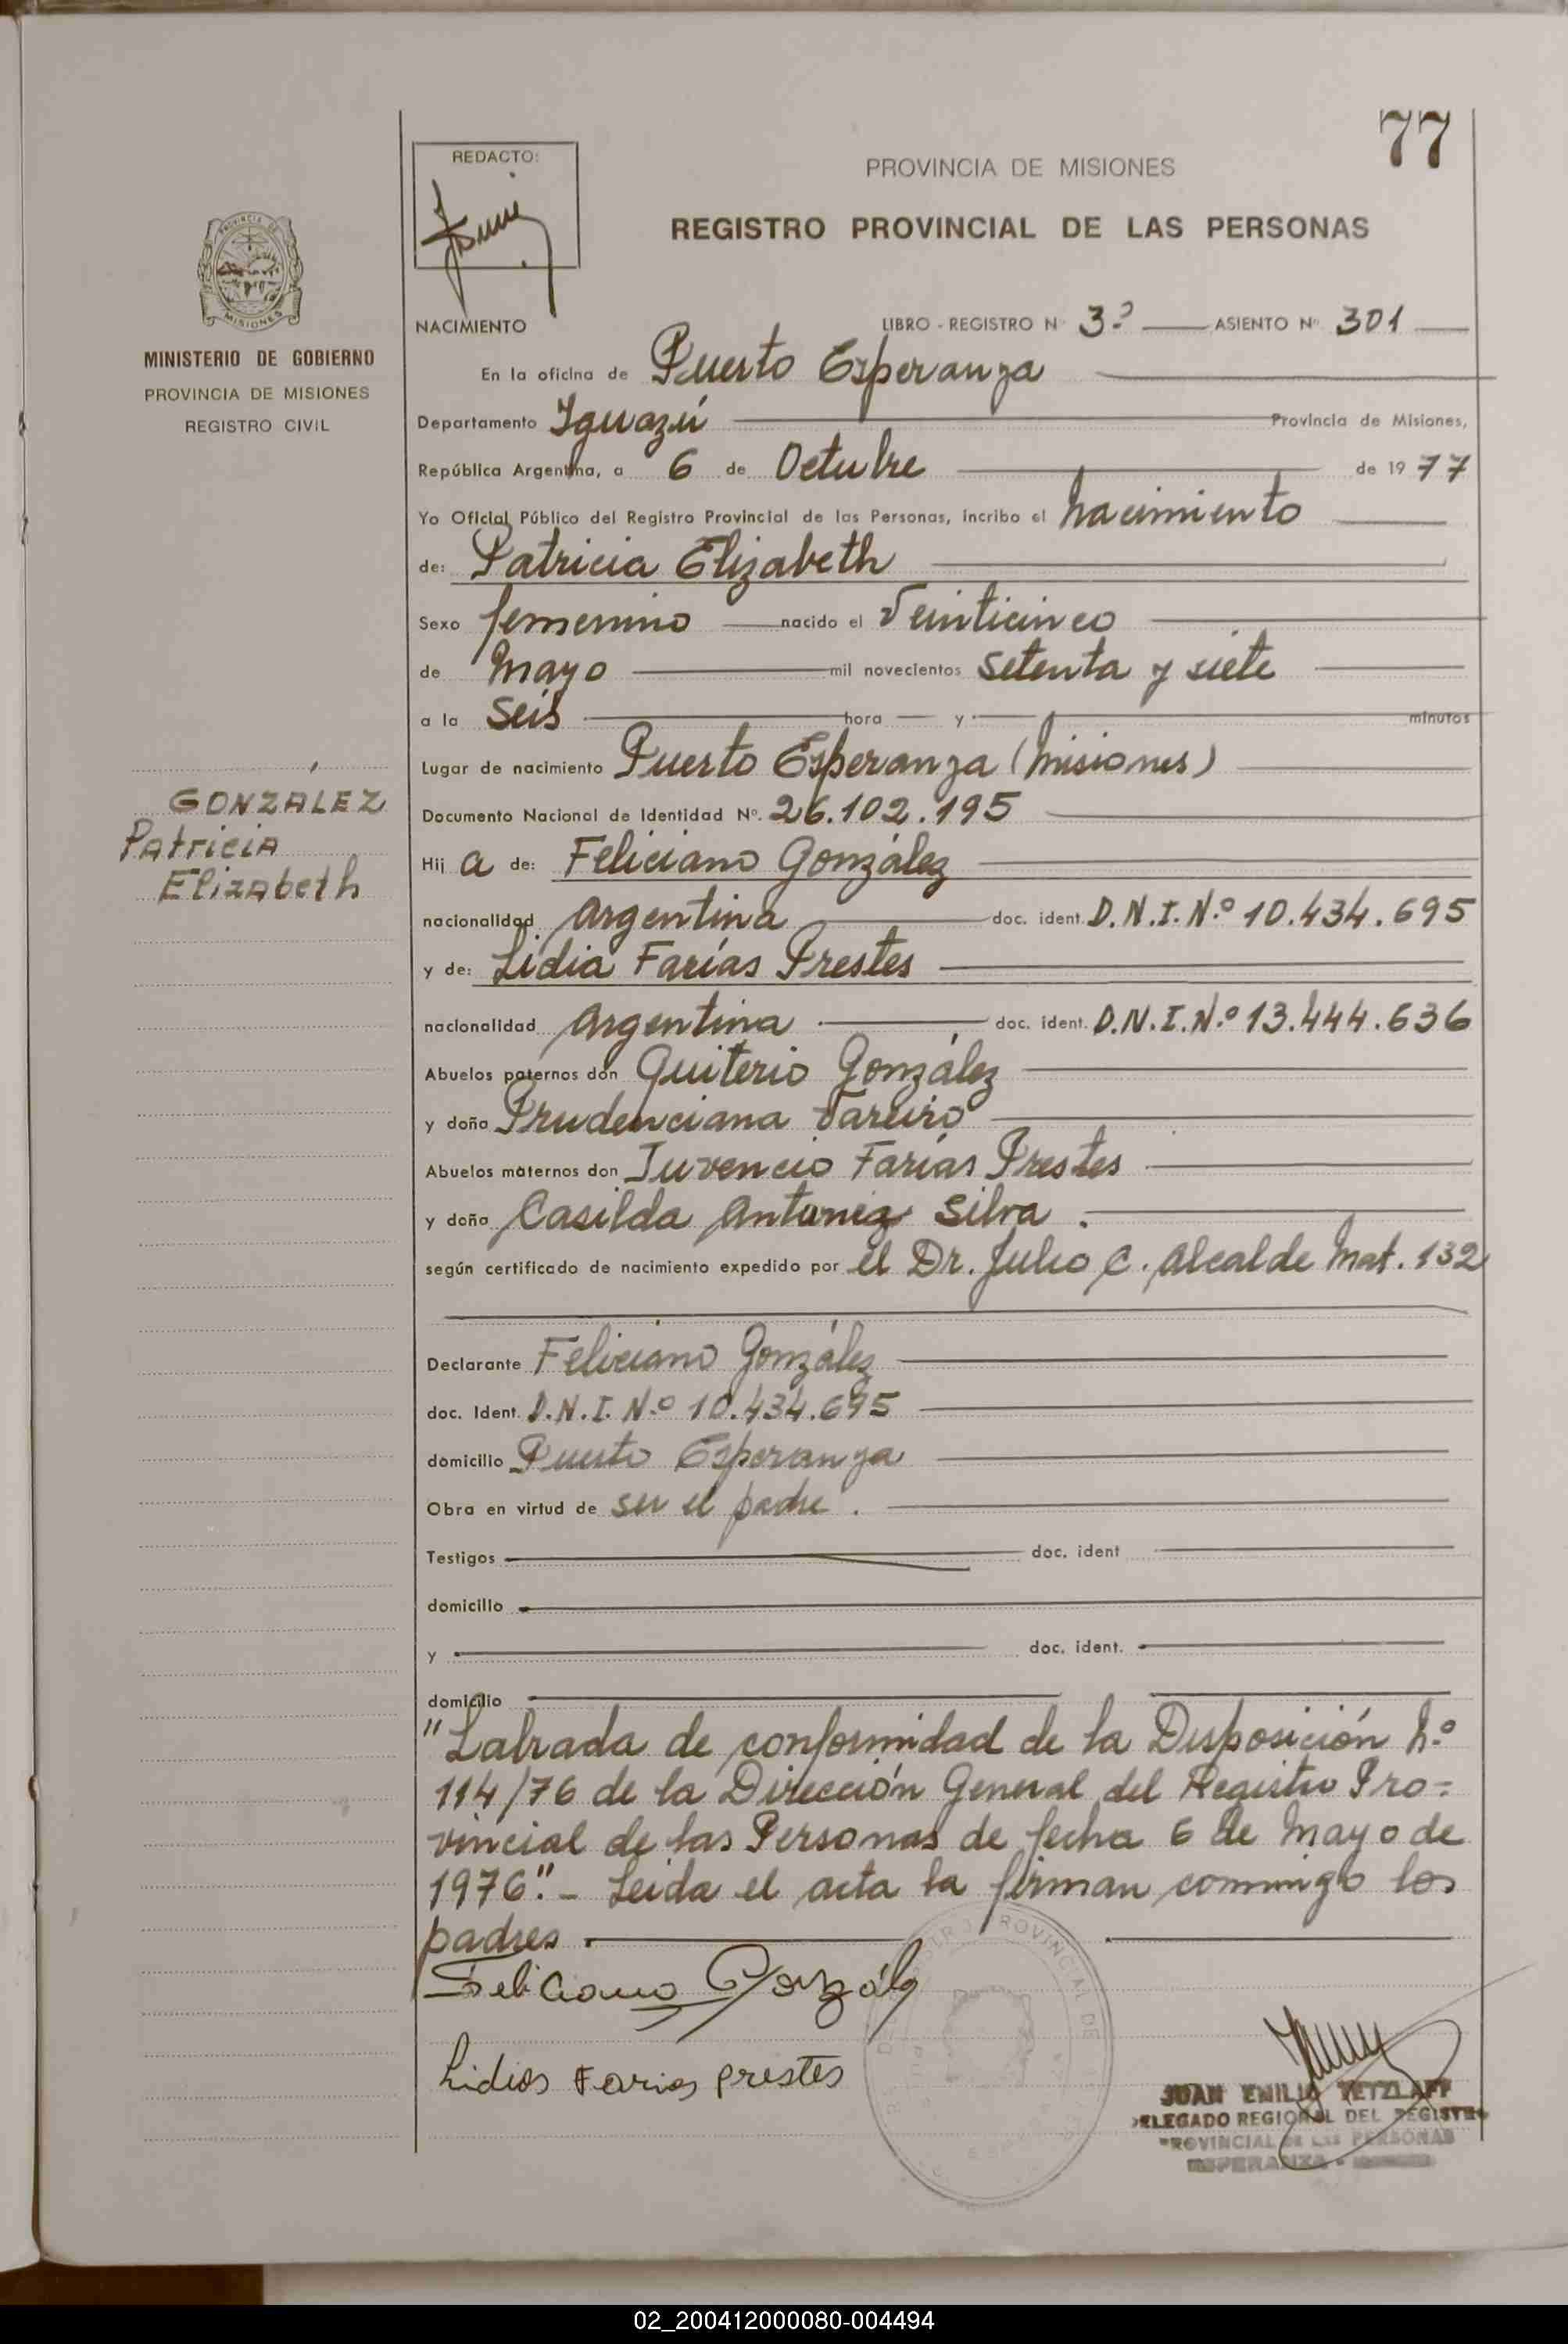 77
REDACTO:
PROVINCIA DE MISIONES
REGISTRO PROVINCIAL DE LAS PERSONAS
PROVINCIA DE
MISIONES
MINISTERIO DE GOBIERNO
PROVINCIA DE MISIONES
REGISTRO CIVIL
NACIMIENTO LIBRO - REGISTRO N° 3º ASIENTO N° 301
En la oficina de Puerto Esperanza
Departamento Iguazú Provincia de Misiones,
República Argentina, a 6 de Octubre de 1977
Yo Oficial Público del Registro Provincial de las Personas, incribo el nacimiento
de: Patricia Elizabeth
Sexo femenino nacido el Veinticinco
de Mayo mil novecientos setenta y siete
a la Seis hora y minutos
Lugar de nacimiento Puerto Esperanza (Misiones)
GONZALEZ
Patricia
Elizabeth
Documento Nacional de Identidad Nº. 26.102.195
Hij a de: Feliciano González
nacionalidad Argentina doc. ident. D.N.I.N.º 10.434.695
y de: Lidia Farías Prestes
nacionalidad Argentina doc. ident. D.N.I.N.º 13.444.636
Abuelos paternos don Quiterio González
y doña Prudenciana
Abuelos maternos don Juvencio Farías Prestes
y doña Casilda Antunez Silva.
según certificado de nacimiento expedido por el Dr. Julio C. Alcalde Mat. 132
Declarante Feliciano González
doc. Ident. D.N.I. N.º 10.434.695
domicilio Puerto Esperanza
Obra en virtud de ser el padre.
Testigos doc. ident
domicilio
y doc. ident.
domicilio
"Labrada de conformidad de la Disposición N.º
114/76 de la Dirección General del Registro Pro=
vincial de las Personas de fecha 6 de Mayo de
1976".- Leida el acta la firman conmigo los
padres.
Feliciano González
Lidia Farias prestes
JUAN EMILIO TETZLAFF
DELEGADO REGIONAL DEL REGISTRO
PROVINCIAL DE LAS PERSONAS
ESPERANZA -
02_200412000080-004494